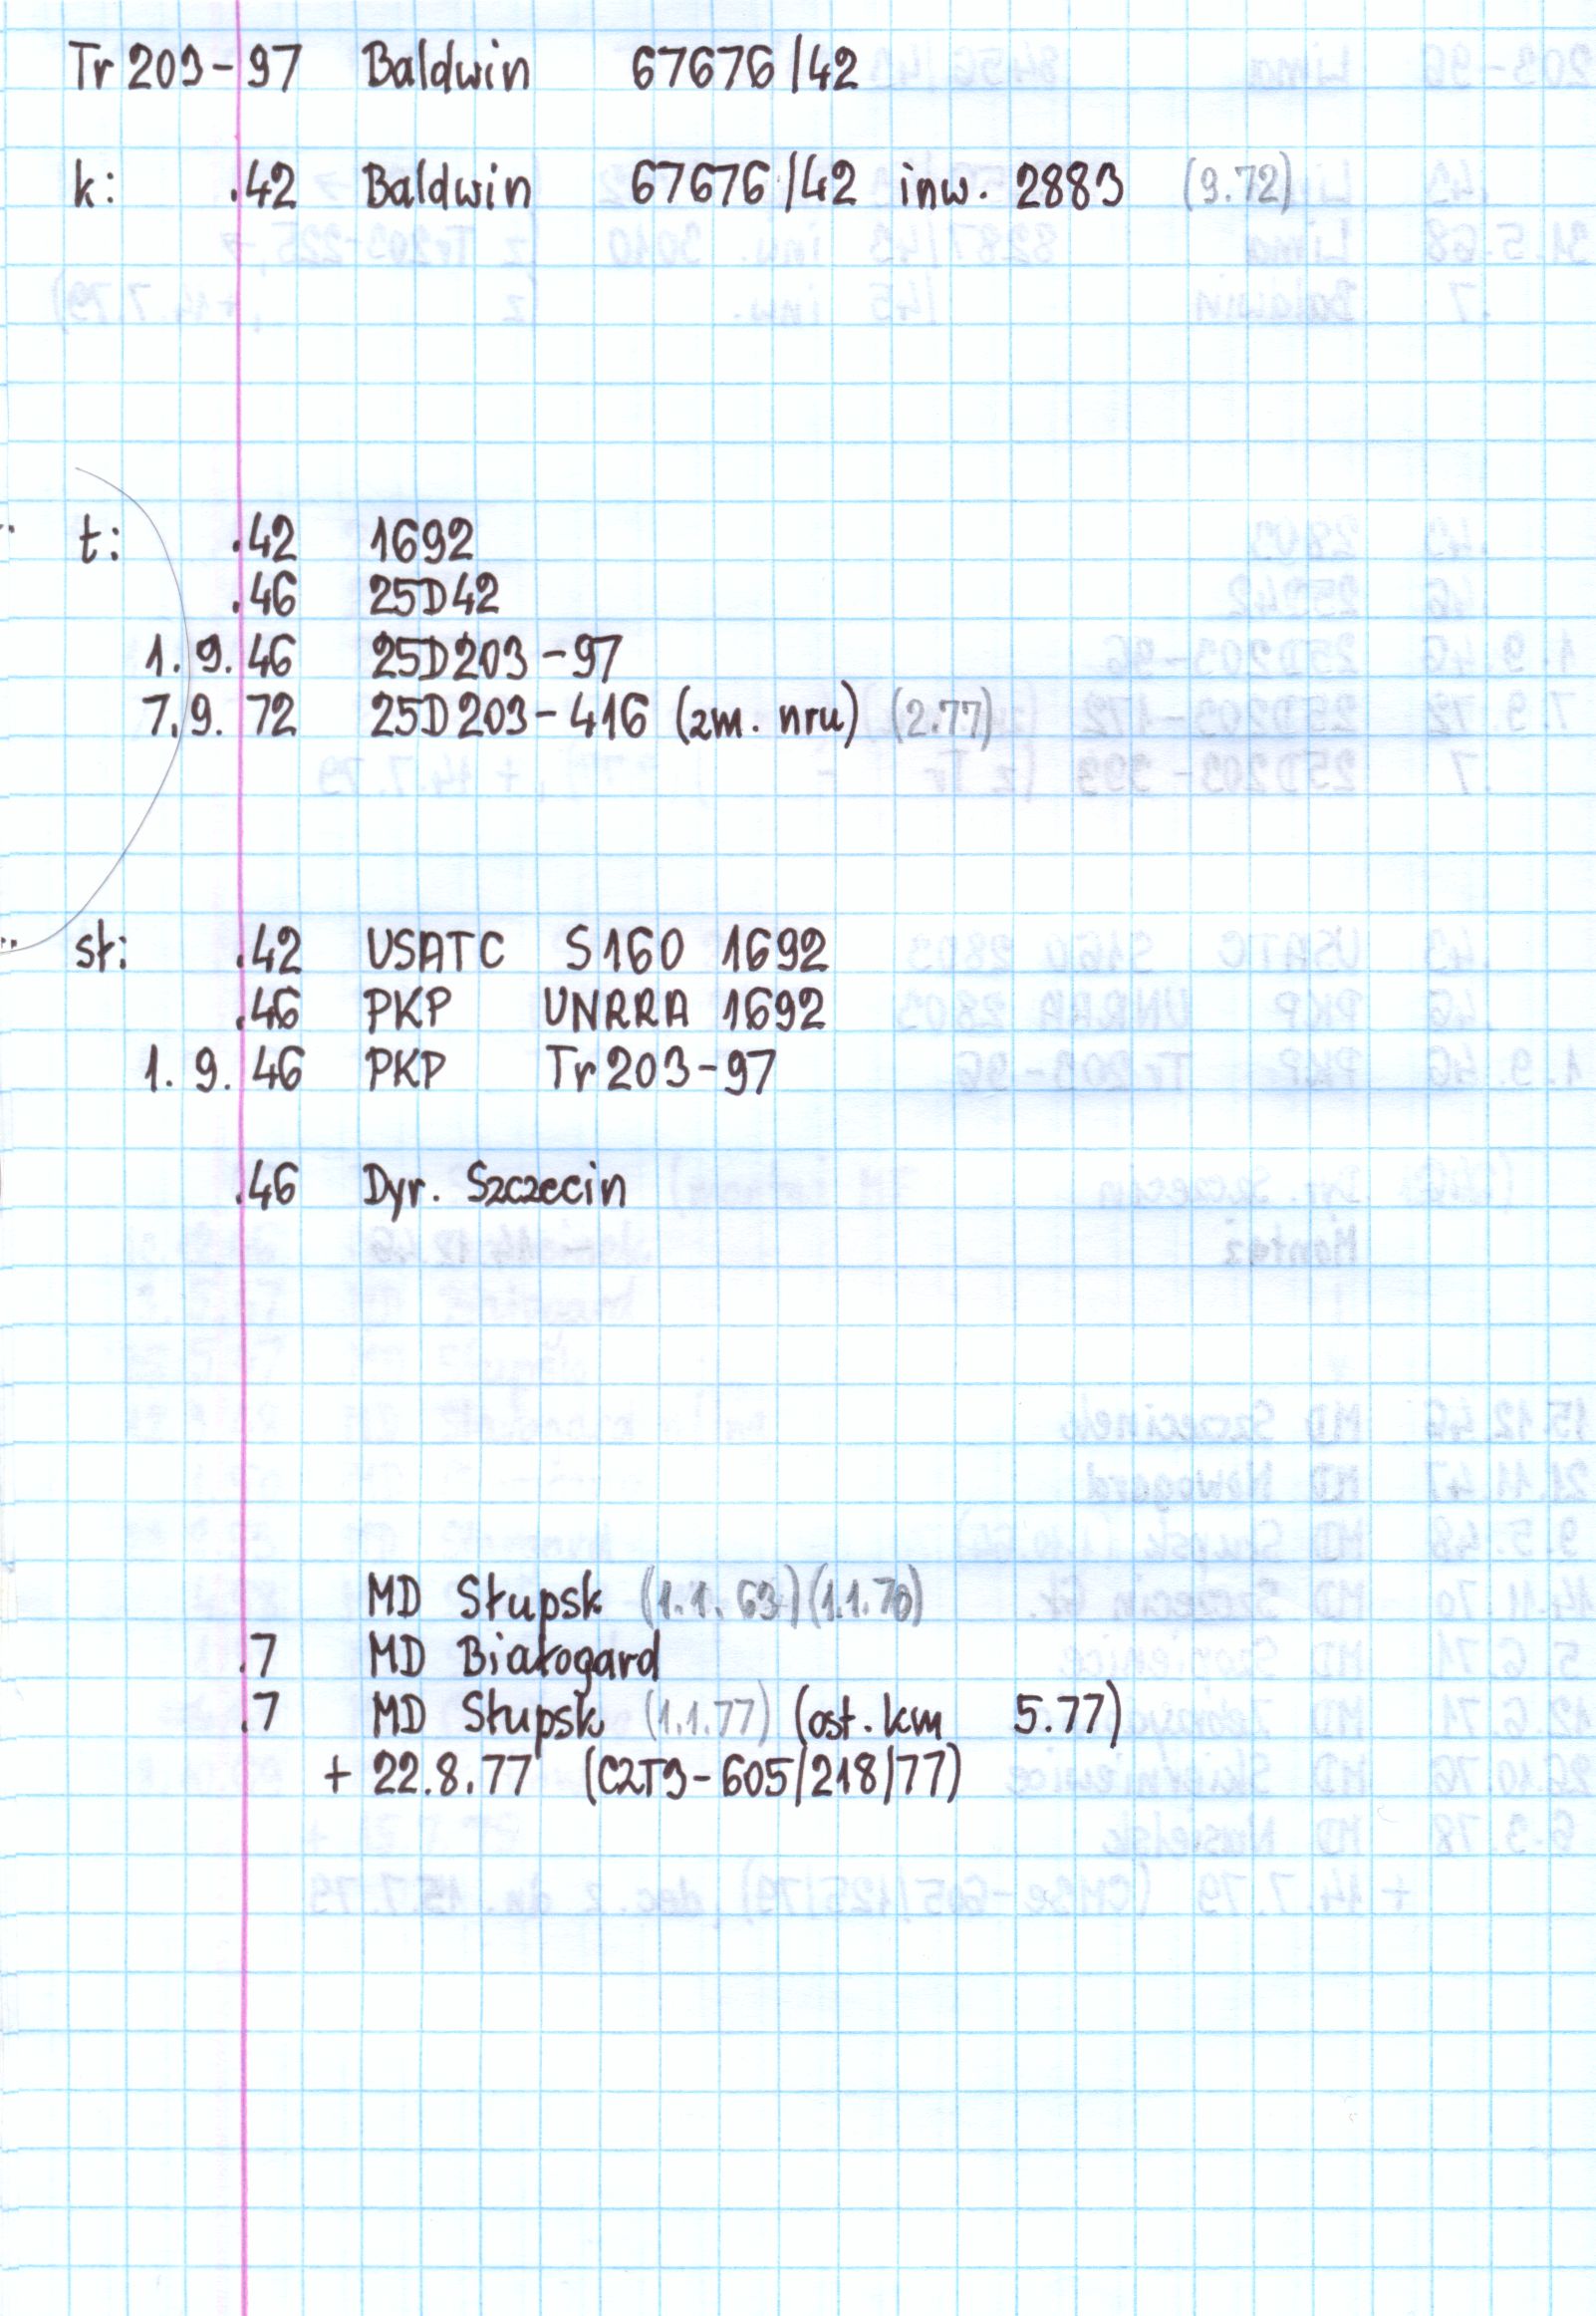 Tr 203-97 Baldwin 67676/42
k: .42 Baldwin 67676/42 inw. 2883 (9.72)
t: .42 1692
.46 25D42
1.9.46 25D203-97
7.9.72 25D203-416 (zm. nru) (2.77)
sł: .42 USATC S160 1692
.46 PKP UNRRA 1692
1.9.46 PKP Tr203-97
.46 Dyr. Szczecin
MD Słupsk (1.1.63) (1.1.70)
.7 MD Białogard
.7 MD Słupsk (1.1.77) (ost. km 5.77)
+ 22.8.77 (C2T3-605/218/77)